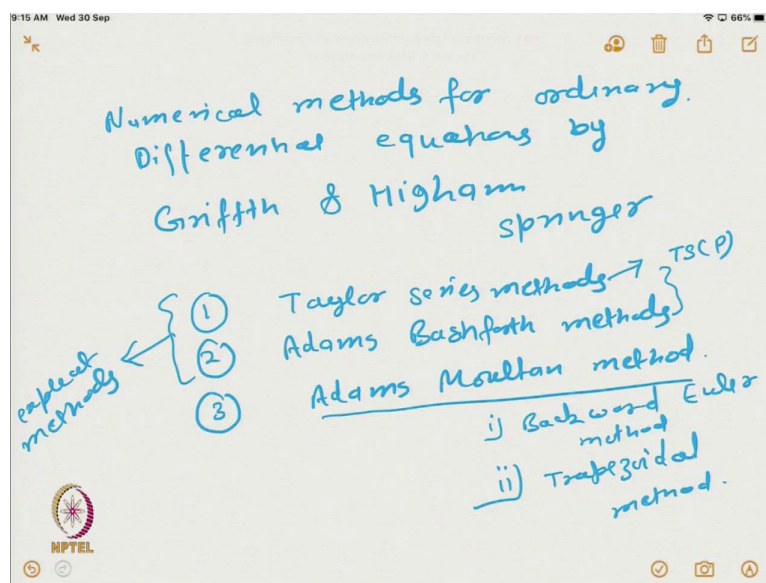 9:15 AM Wed 30 Sep
66%
Numerical methods for ordinary.
Differential equations by
Griffth & Higham
springer
1 Taylor series methods → TS(P)
2 Adams Bashforth methods
explicit methods
3 Adams Moultan method.
i) Backward Euler
method
ii) Trapezoidal
method.
NPTEL